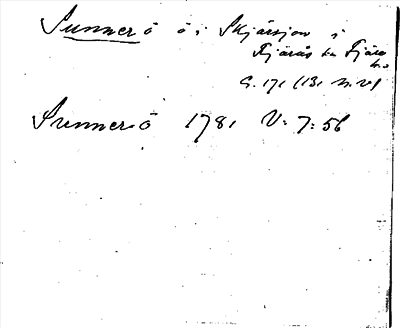 Sunnerö ö i Skjärsjön i
Fjärås sn Fjäre
hd
G. 171 (131 n.v)
Sunnerö 1781 V: 7: 56